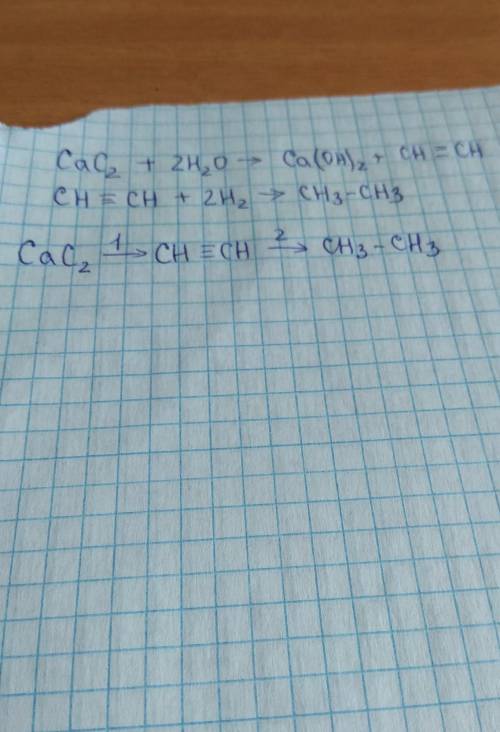 CaC₂ + 2H₂O → Ca(OH)₂ + CH≡CH
CH≡CH + 2H₂ → CH₃-CH₃
CaC₂ —1→ CH≡CH —2→ CH₃-CH₃